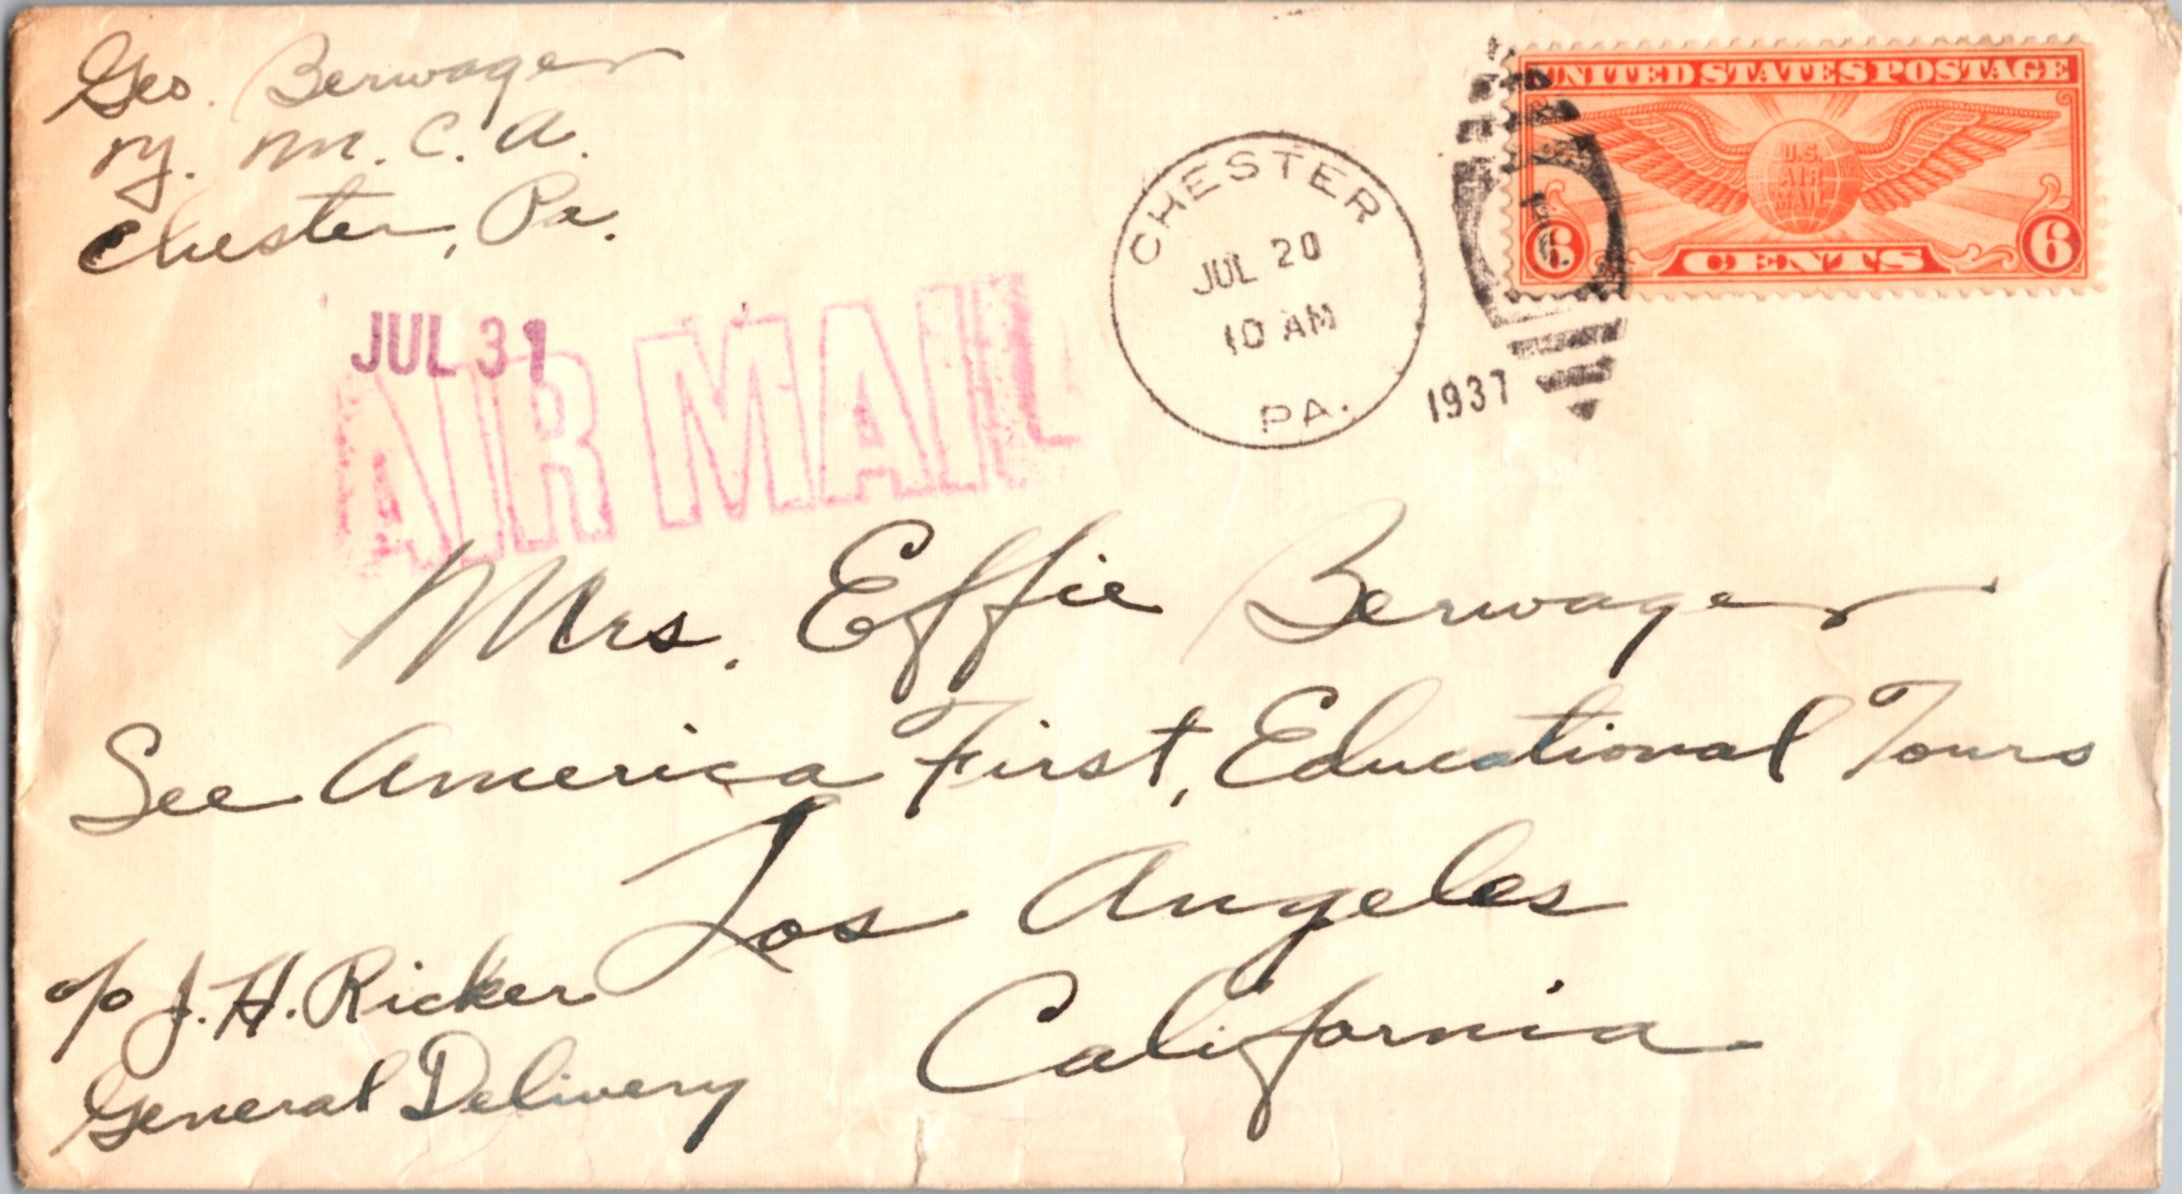 Geo. Berwager
Y. M. C. A.
Chester, Pa.
UNITED STATES POSTAGE
U.S.
AIR
MAIL
6 CENTS 6
CHESTER
JUL 20
10 AM
PA.
1937
JUL 31
AIR MAIL
Mrs. Effie Berwager
See America First, Educational Tours
Los Angeles
California
c/o J. H. Ricker
General Delivery